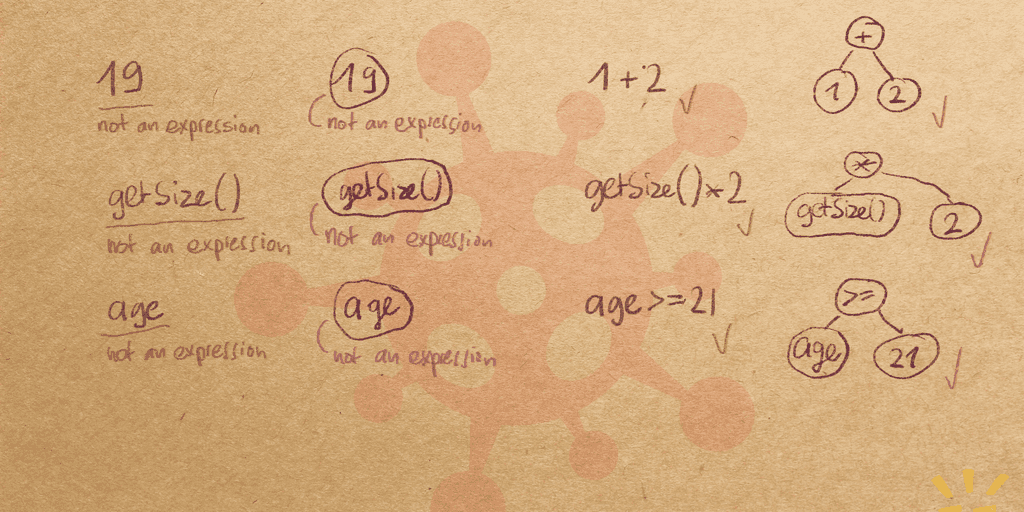 19
not an expression
19
not an expression
1 + 2
+
1 2
getSize()
not an expression
getSize()
not an expression
getSize() * 2
*
getSize() 2
age
not an expression
age
not an expression
age >= 21
>=
age 21